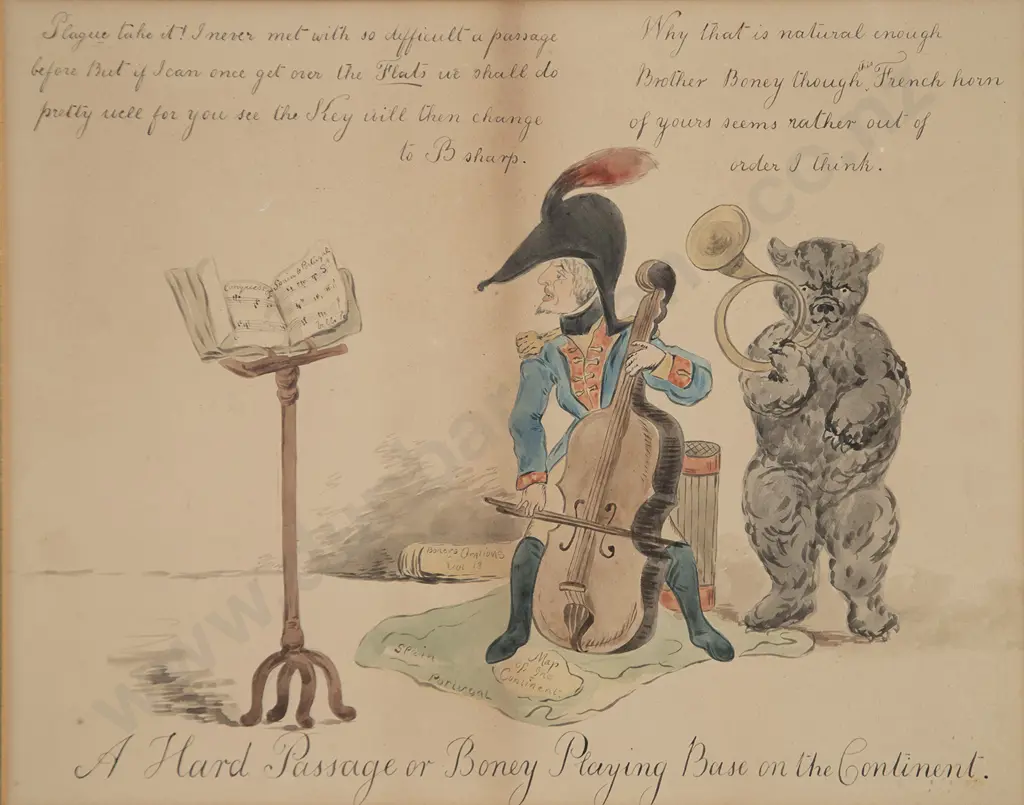 Plague take it! I never met with so difficult a passage
before But if I can once get over the Flats we shall do
pretty well for you see the Key will then change
to B sharp.
Why that is natural enough
Brother Boney though this French horn
of yours seems rather out of
order I think.
Congress
Spain & Portugal
Boney's
Map
of the
Continent
Spain
Portugal
A Hard Passage or Boney Playing Base on the Continent.